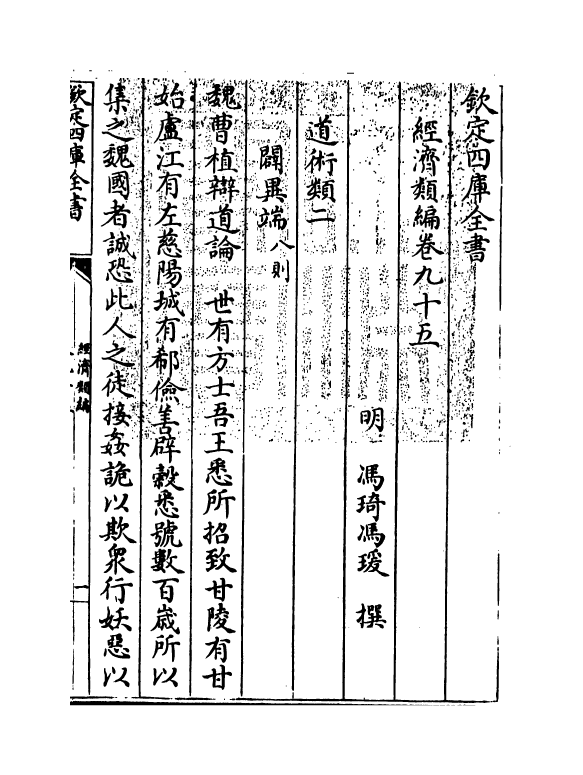 欽定四庫全書
經濟類編卷九十五
明 馮琦馮瑗 撰
道術類二
闢異端八則
魏曹植辯道論 世有方士吾王悉所招致甘陵有甘
始廬江有左慈陽城有郗儉善辟穀悉號數百歳所以
集之魏國者誠恐此人之徒接姦詭以欺衆行妖惡以
欽定四庫全書
經濟類編
一